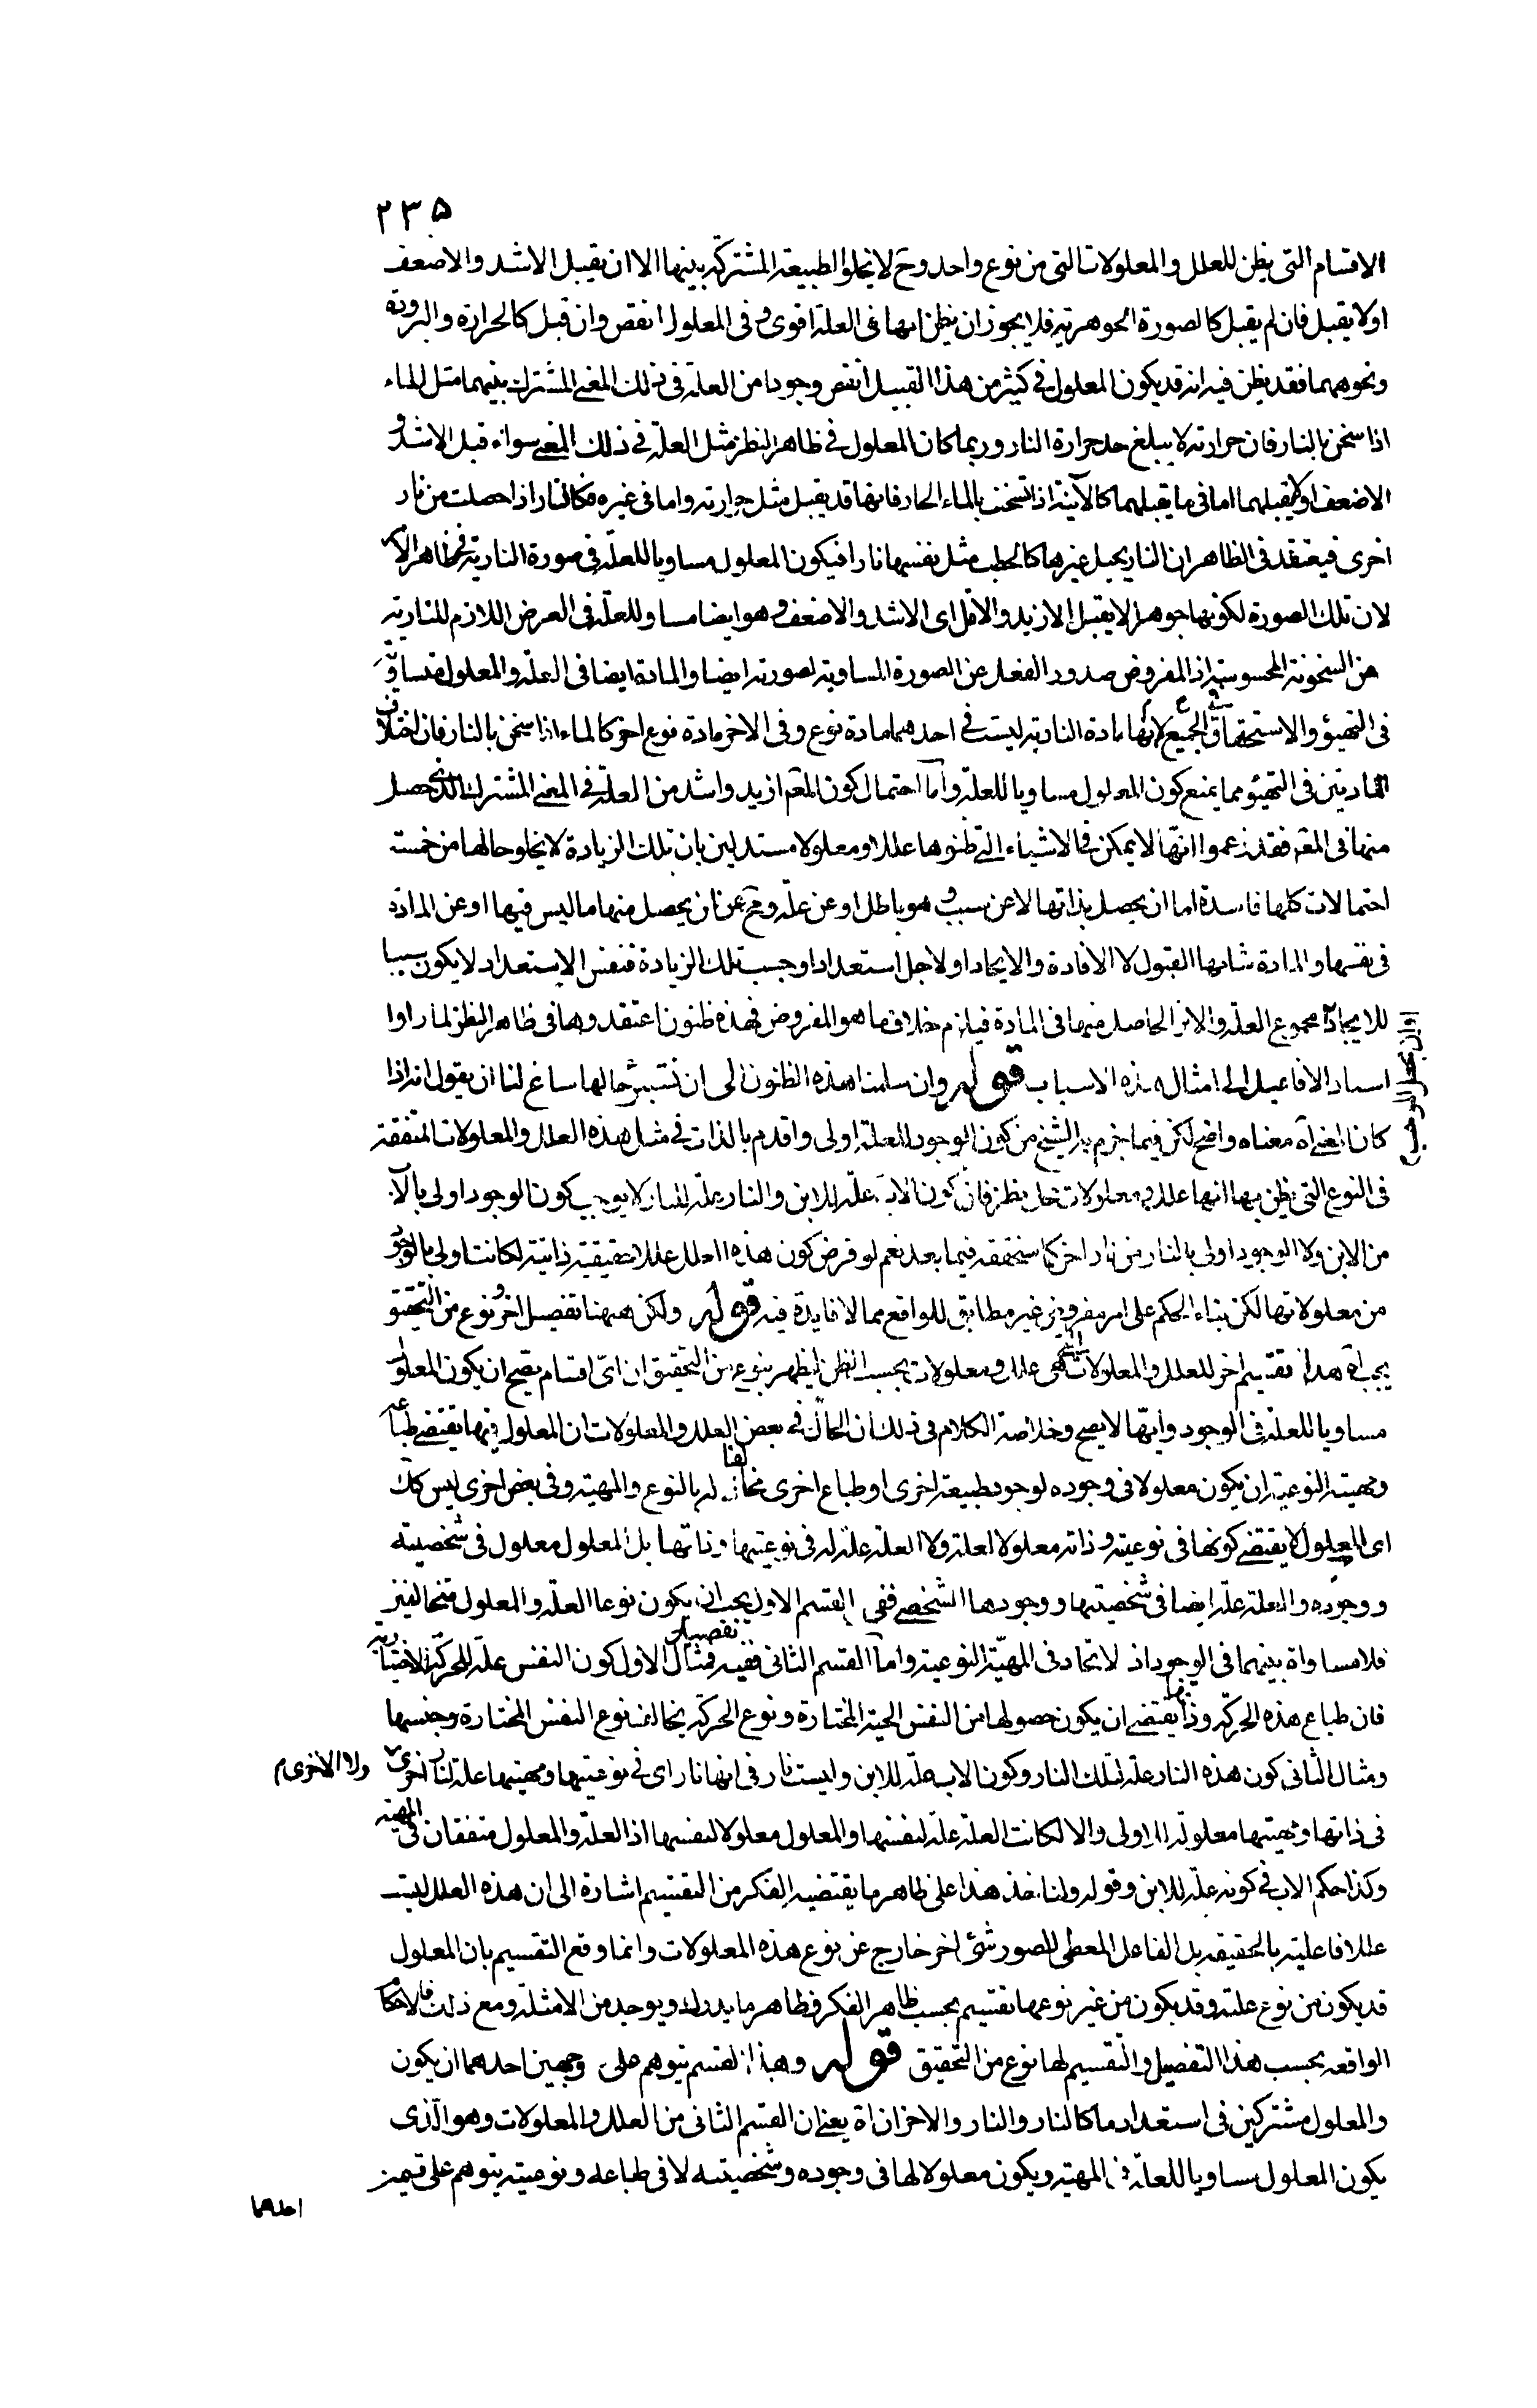 ٢٣٥
الاقسام التى يظن للعلل والمعلولات التى من نوع واحد وح لا يخلو الطبيعة المشتركة بينها الا ان يقبل الاشد والاضعف
اولا يقبل فان لم يقبل كالصورة الجوهرية فلا يجوز ان يظن انها فى العلة اقوى و فى المعلول انقص وان قبل كالحرارة والبرودة
ونحوهما فقد يظن فيه انه قد يكون المعلول فى كثير من هذا القبيل انقص وجودا من العلة فى ذلك المعنى المشترك بينهما مثل الماء
اذا سخن بالنار فان حرارته لا يبلغ حد حرارة النار وربما كان المعلول فى ظاهر النظر مثل العلة فى ذلك المعنى سواء قبل الاشد و
الاضعف او لا يقبلهما اما فى ما يقبلهما كالآنية اذا تسخنت بالماء الحار فانها قد يقبل مثل حرارته واما فى غيره فكالنار اذا حصلت من نار
اخرى فيعتقد فى الظاهر ان النار يحيل غيرها كالحطب مثل نفسها نارا فيكون المعلول مساويا للعلة فى صورة النارية فى ظاهر الامر
لان تلك الصورة لكونها جوهرا لا يقبل الازيد والاقل اى الاشد والاضعف وهو ايضا مساو للعلة فى العرض اللازم للنارية
من السخونة المحسوسة اذ المفروض صدور الفعل عن الصورة المساوية لصورته ايضا والمادة ايضا فى العلة والمعلول متساوية
فى التهيؤ والاستحقاق فى الجميع لانها مادة النارية ليست فى احدهما مادة نوع وفى الاخر مادة نوع اخر كالماء اذا سخن بالنار فان اختلاف
المادتين فى التهيؤ مما يمنع كون المعلول مساويا للعلة واما احتمال كون المعلم ازيد واشد من العلة فى المعنى المشترك الذى حصل
منها فى المعلم فقد زعموا انها لا يمكن فى الاشياء التى ظنوها عللا ومعلولا مستدلين بان تلك الزيادة لا يخلو حالها من خمسة
احتمالات كلها فاسدة اما ان يحصل بذاتها لا عن سبب وهو باطل او عن علة وح عن ان يحصل منها ما ليس فيها او عن المادة
فى نفسها والمادة شانها القبول لا الافادة والايجاد او لاجل استعداد اوجب تلك الزيادة فنفس الاستعداد لا يكون سببا
للايجاد مجموع العلة والاثر الحاصل منها فى المادة فيلزم خلاف ما هو المفروض فهذه ظنون اعتقدوها فى ظاهر النظر لما راوا
او ان يجعل الموجب
اسناد الافاعيل الى امثال هذه الاسباب قوله وان سلمنا هذه الظنون الى ان نستبين حالها ساغ لنا ان يقول انه اذا
كان المعنى آه معناه واضح لكن فيما جزم به الشيخ من كون الوجود للعلة اولى واقدم بالذات فى مثل هذه العلل والمعلولات المتفقة
فى النوع التى يظن بها انها علل ومعلولات محل نظر فان كون الاب علة للابن والنار علة للنار لا يوجب كون الوجود اولى بالاب
من الابن ولا الوجود اولى بالنار من نار اخر كما سنحققه فيما بعد نعم لو فرض كون هذه العلل عللا حقيقية ذاتية لكانت اولى بالوجود
من معلولاتها لكن بناء الحكم على امر مفروض غير مطابق للواقع مما لا فايدة فيه قوله ولكن ههنا تفصيل اخر و نوع من التحقيق
يجب آه هذا تقسيم اخر للعلل والمعلولات التى هى علل ومعلولات بحسب الظن ليظهر بنوع من التحقيق ان اى اقسام يصح ان يكون المعلول
مساويا للعلة فى الوجود وايها لا يصح وخلاصة الكلام فى ذلك ان الحال فى بعض العلل والمعلولات ان المعلول فيها يقتضى طباعه
ومهيته النوعية ان يكون معلولا فى وجوده لوجود طبيعة اخرى او طباع اخرى مخالفا له بالنوع والمهية وفى بعض اخرى ليس كك
اى المعلول لا يقتضى كونها فى نوعيته وذاته معلولا لعلة ولا العلة علة له فى نوعيتها وذاتها بل المعلول معلول فى شخصيته
ووجوده والعلة علة ايضا فى شخصيتها ووجودها الشخصى ففى القسم الاول يجب ان يكون نوعا العلة والمعلول متخالفين
فلا مساواة بينهما فى الوجود اذ لا اتحاد فى المهية النوعية واما القسم الثانى ففيه تفصيل فمثال الاول كون النفس علة للحركة الاختيارية
فان طباع هذه الحركة وذاتها يقتضى ان يكون حصولها من النفس الحية المختارة ونوع الحركة يخالف نوع النفس المختارة وجنسها
ومثال الثانى كون هذه النار علة لتلك النار وكون الاب علة للابن وليست نار فى انها نار اى فى نوعيتها ومهيتها علة لنار اخرى ولا الاخرى م
فى ذاتها ومهيتها معلولة للاولى والا لكانت العلة علة لنفسها والمعلول معلولا لنفسها اذ العلة والمعلول متفقان فى المهية
وكذا حكم الاب فى كونه علة للابن وقوله ولناخذ هذا على ظاهر ما يقتضيه الفكر من التقسيم اشارة الى ان هذه العلل ليست
عللا فاعلية بالحقيقة بل الفاعل المعطى للصور شئ اخر خارج عن نوع هذه المعلولات وانما وقع التقسيم بان المعلول
قد يكون من نوع علته وقد يكون من غير نوعها تقسيم بحسب ظاهر الفكر فظاهر ما يدرك ويوجد من الامثلة ومع ذلك فالاحكام
الواقعة بحسب هذا التفصيل والتقسيم لها نوع من التحقيق قوله وهذا القسم يتوهم على وجهين احدهما ان يكون
والمعلول مشتركين فى استعداد ما كالنار والنار والاخر ان آه يعنى ان القسم الثانى من العلل والمعلولات وهو الذى
يكون المعلول مساويا للعلة فى المهية ويكون معلولا لها فى وجوده وشخصيته لا فى طباعه ونوعيته يتوهم على قسمين
احدهما